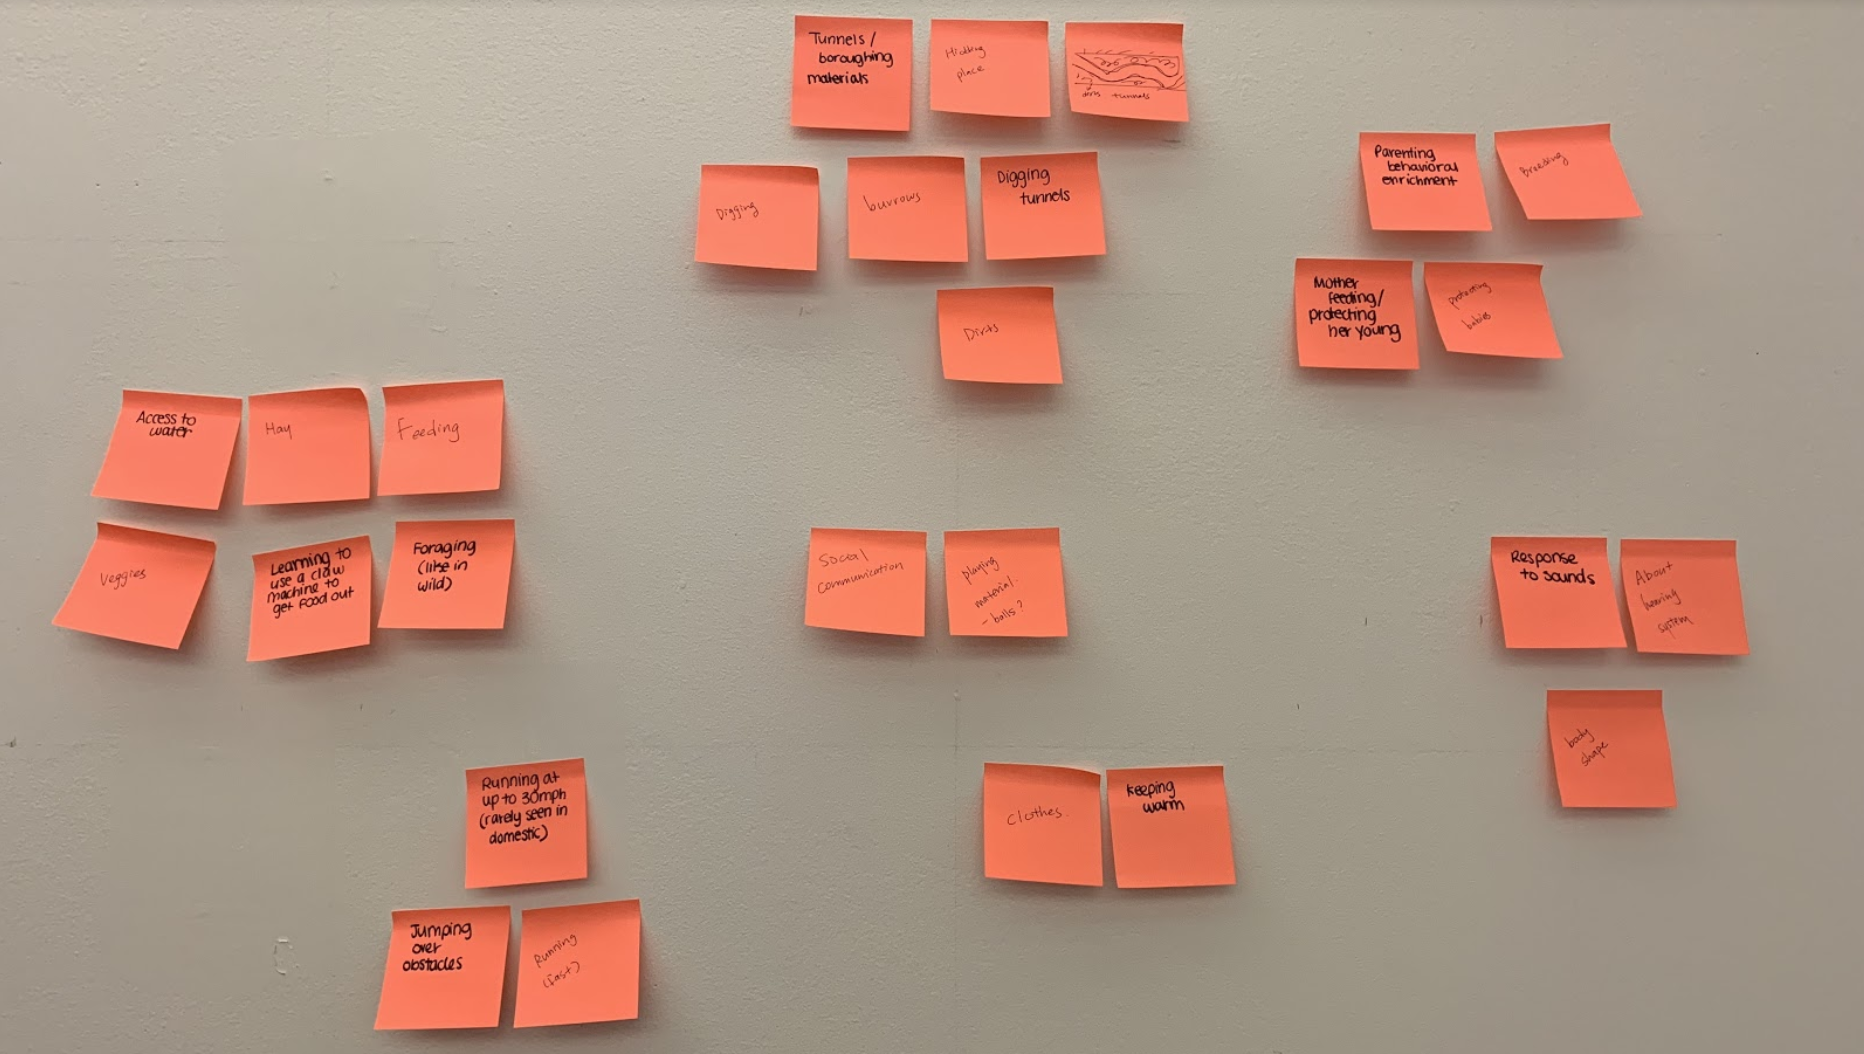 Tunnels /
boroughing
materials
Hiding
place
dirts tunnels
Digging
burrows
Digging
tunnels
Dirts
Parenting
behavioral
enrichment
Breeding
Mother
feeding/
protecting
her young
protecting
babies
Access to
water
Hay
Feeding
Veggies
Learning to
use a claw
machine to
get food out
Foraging
(like in
wild)
Social
communication
playing
material.
- balls?
Response
to sounds
About
hearing
system
body
shape
Running at
up to 30mph
(rarely seen in
domestic)
Jumping
over
obstacles
Running
(fast)
clothes.
keeping
warm